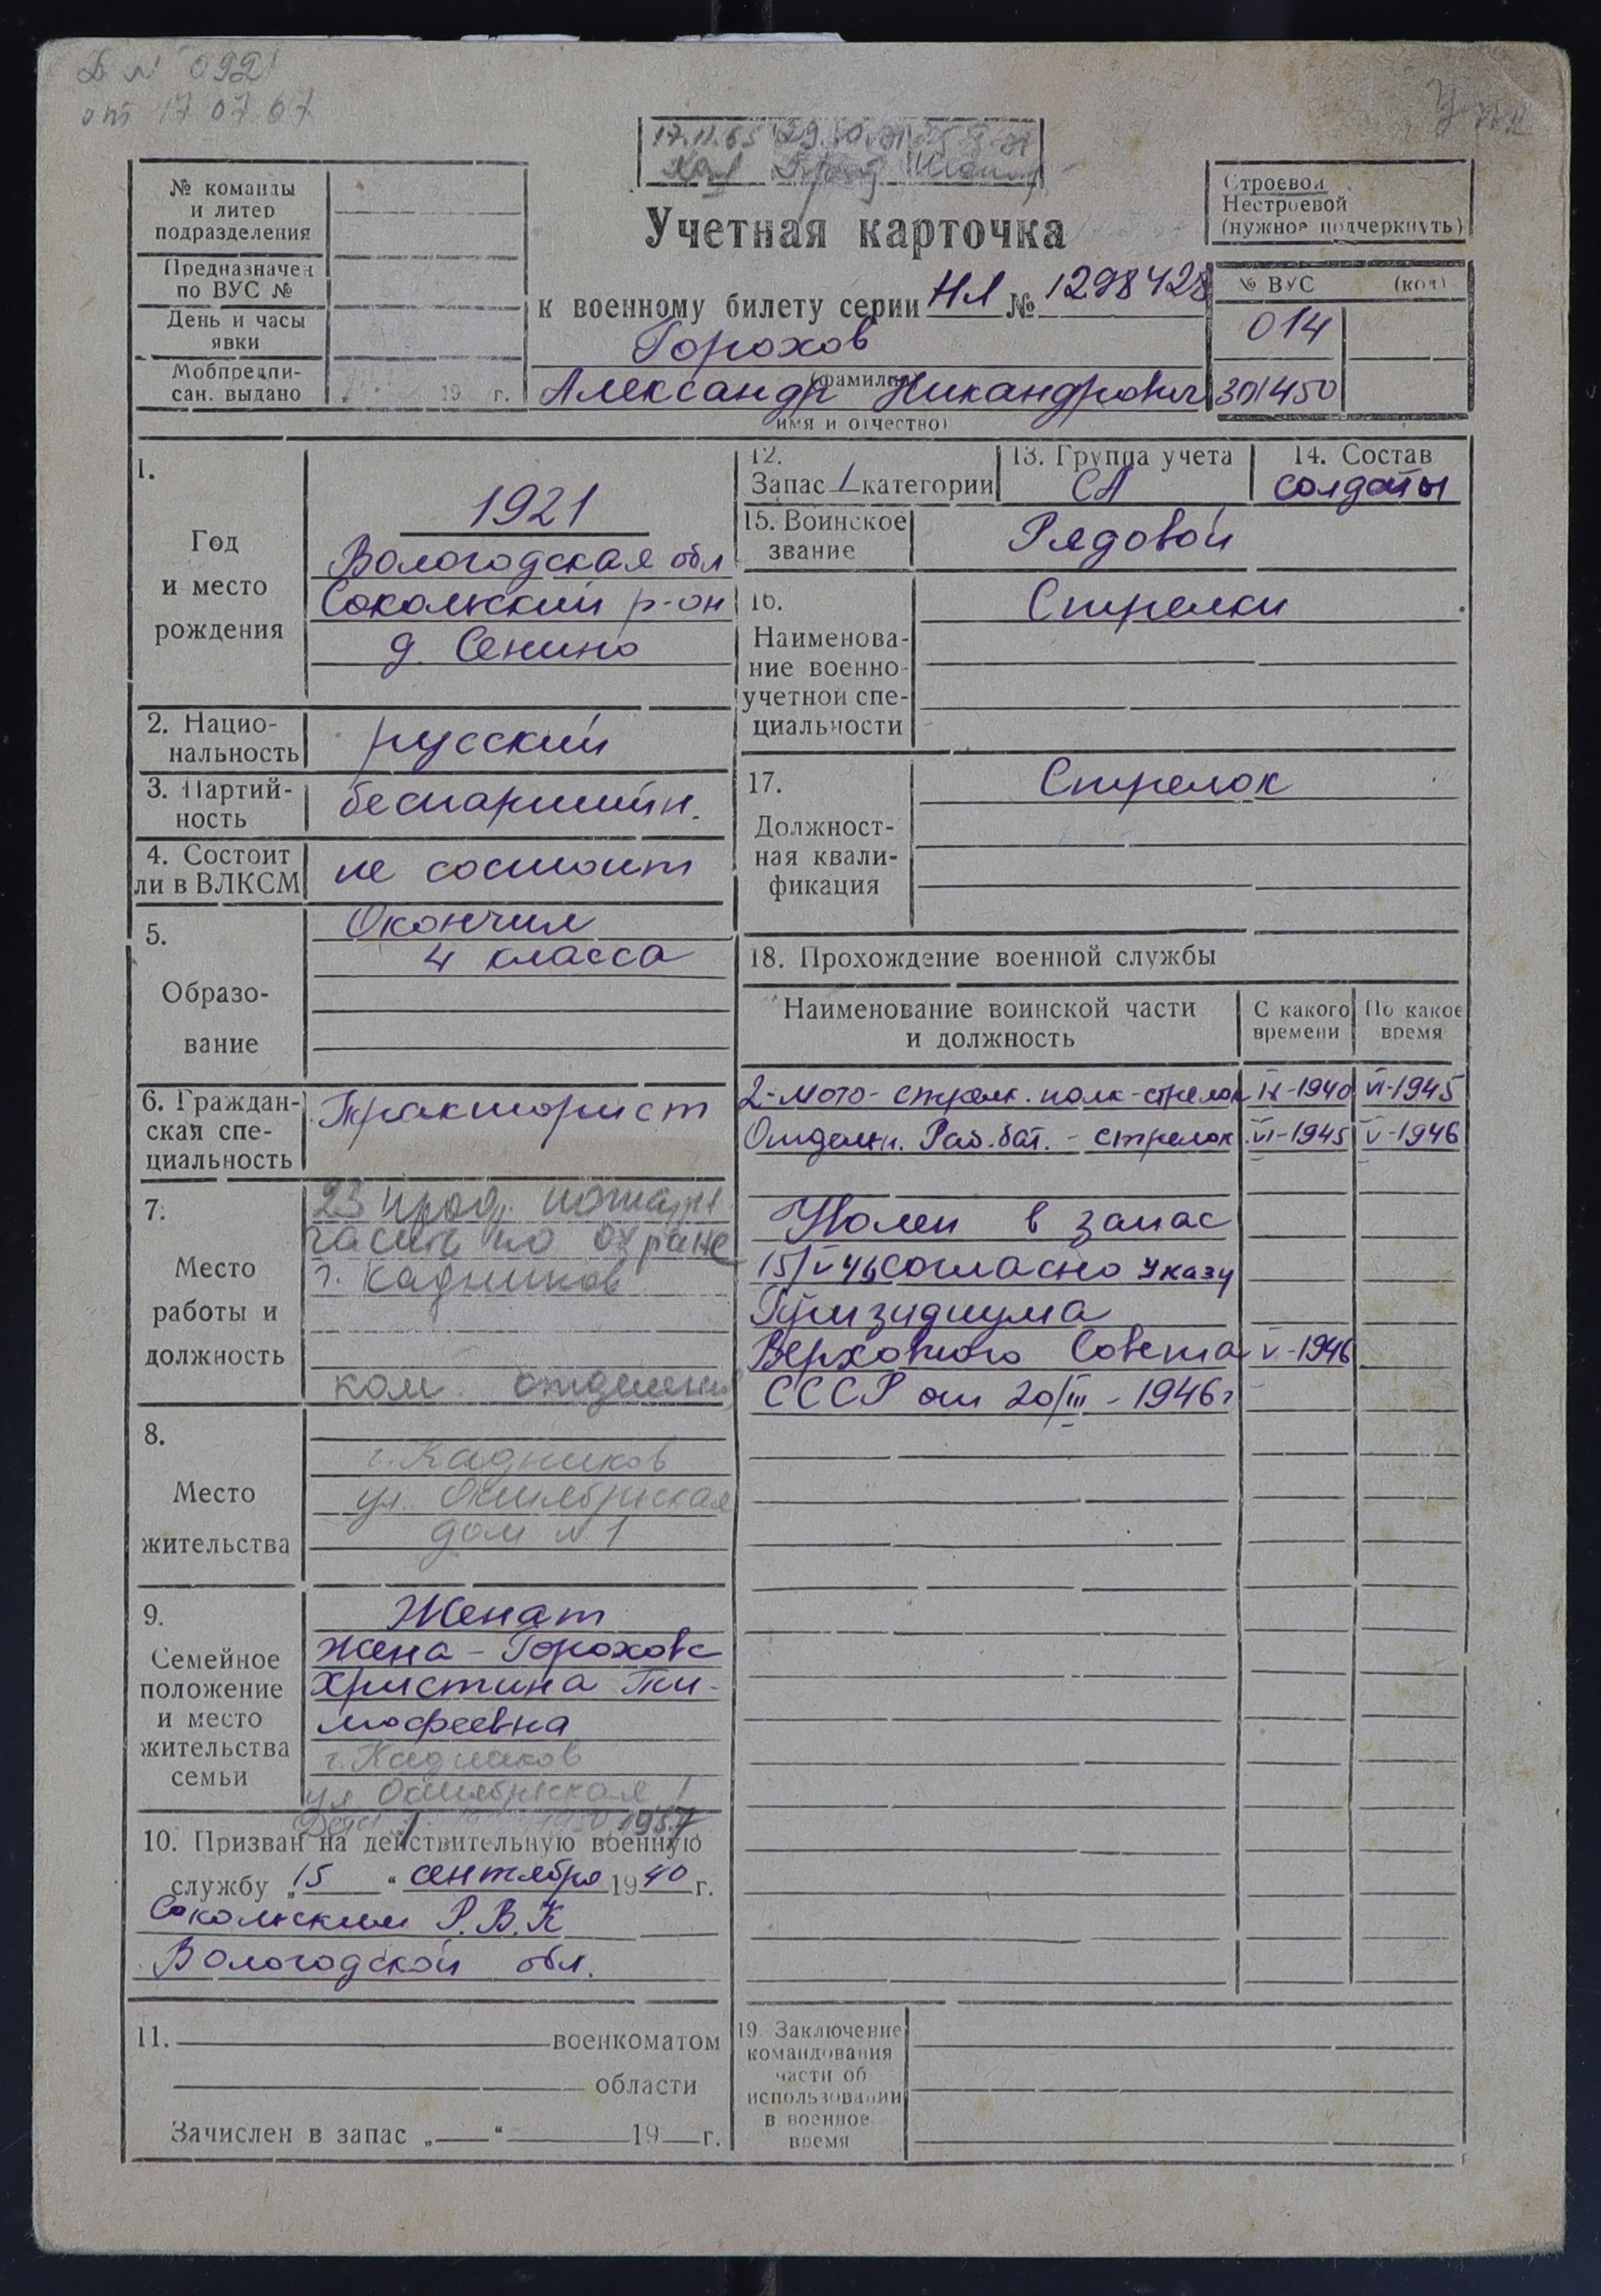 Д. № 092
от 17 07 67
17.11.65
№ команды
и литер
подразделения
Предназначен
по ВУС №
День и часы
явки
Мобпредпи-
сан. выдано 19 г.
Учетная карточка
к военному билету серии НЛ № 1298428
Горохов
(фамилия)
Александр Никандрович
имя и отчество)
Строевой
Нестроевой
(нужное подчеркнуть)
№ ВУС (код)
014
301450
1.
Год
и место
рождения
1921
Вологодская обл
Сокольский р-он
д. Сенино
2. Нацио-
нальность
русский
3. Партий-
ность
беспартийн.
4. Состоит
ли в ВЛКСМ
не состоит
5.
Образо-
вание
Окончил
4 класса
6. Граждан-
ская спе-
циальность
Тракторист
7.
Место
работы и
должность
23 проф. пожарн
часть по охране
г. Кадников
ком. отделения
8.
Место
жительства
г. Кадников
ул. Октябрьская
дом № 1
9.
Семейное
положение
и место
жительства
семьи
Женат
жена - Горохова
Христина Ти-
мофеевна
г. Кадников
ул Октябрьская 1
1957
10. Призван на действительную военную
службу „15" сентября 1940 г.
Сокольским Р.В.К
Вологодской обл.
11. военкоматом
области
Зачислен в запас „ " 19 г.
12.
Запас 1 категории
13. Группа учета
СА
14. Состав
солдаты
15. Воинское
звание
Рядовой
16.
Наименова-
ние военно-
учетной спе-
циальности
Стрелки
17.
Должност-
ная квали-
фикация
Стрелок
18. Прохождение военной службы
Наименование воинской части
и должность
С какого
времени
По какое
время
2-мото-стрелк. полк-стрелок IX-1940 VI-1945
Отдельн. Раб. бат. - стрелок VI-1945 V-1946
Уволен в запас
15/V 46 согласно Указу
Призидиума
Верховного Совета V-1946
СССР от 20/III - 1946 г
19. Заключение
командования
части об
использовании
в военное
время